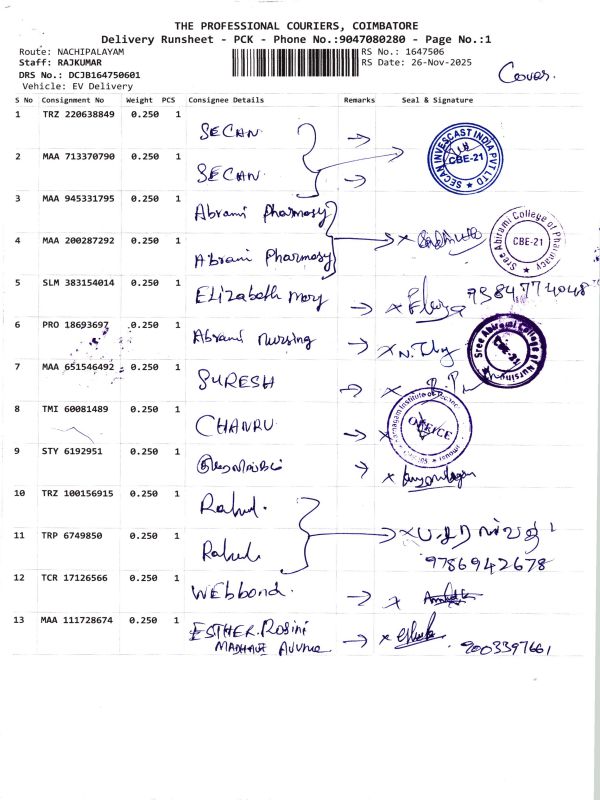 THE PROFESSIONAL COURIERS, COIMBATORE
Delivery Runsheet - PCK - Phone No.:9047080280 - Page No.:1
Route: NACHIPALAYAM
RS No.: 1647506
Staff: RAJKUMAR
RS Date: 26-Nov-2025
DRS No.: DCJB164750601
Vehicle: EV Delivery
Cover.
S No Consignment No Weight PCS Consignee Details Remarks Seal & Signature
1 TRZ 220638849 0.250 1 SECAN
SECAN INVESCAST INDIA PVT LTD
CBE-21
2 MAA 713370790 0.250 1 SECAN
3 MAA 945331795 0.250 1 Abrami Pharmasy
4 MAA 200287292 0.250 1 Abrami Pharmasy
Sree Abirami College of Pharmacy
CBE-21
5 SLM 383154014 0.250 1 Elizabeth mary
6 PRO 18693697 0.250 1 Abrami nursing
Sree Abirami College of Nursing
CBE-21
7 MAA 651546492 0.250 1 SURESH
8 TMI 60081489 0.250 1 CHANRU
OFFICE
9 STY 6192951 0.250 1
10 TRZ 100156915 0.250 1 Rahul.
11 TRP 6749850 0.250 1 Rahul.
9786942678
12 TCR 17126566 0.250 1 WEbbond.
13 MAA 111728674 0.250 1 ESTHER.Rosini
9003397661